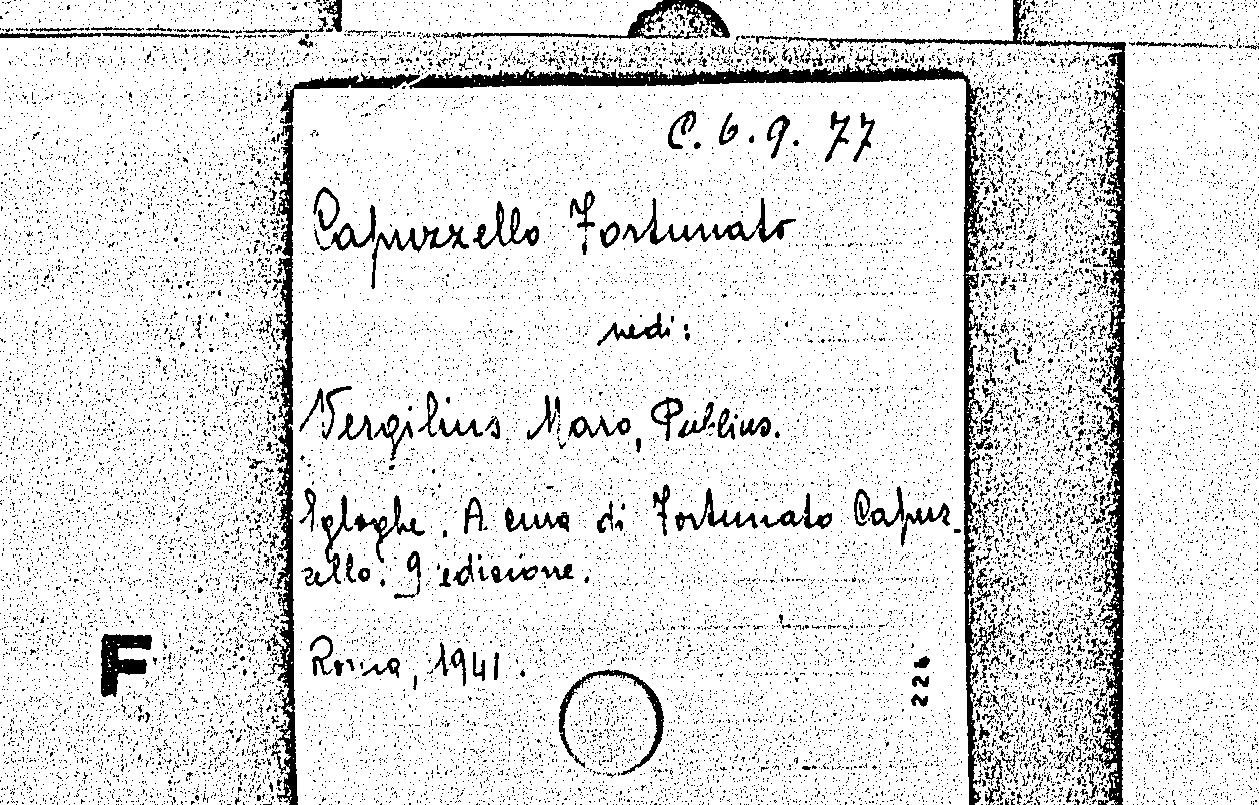 C. 6. 9. 77
Capuzzello Fortunato
vedi:
Vergilius Maro, Publius.
Egloghe. A cura di Fortunato Capuz-
zello. 9 edizione.
Roma, 1941.
226
F